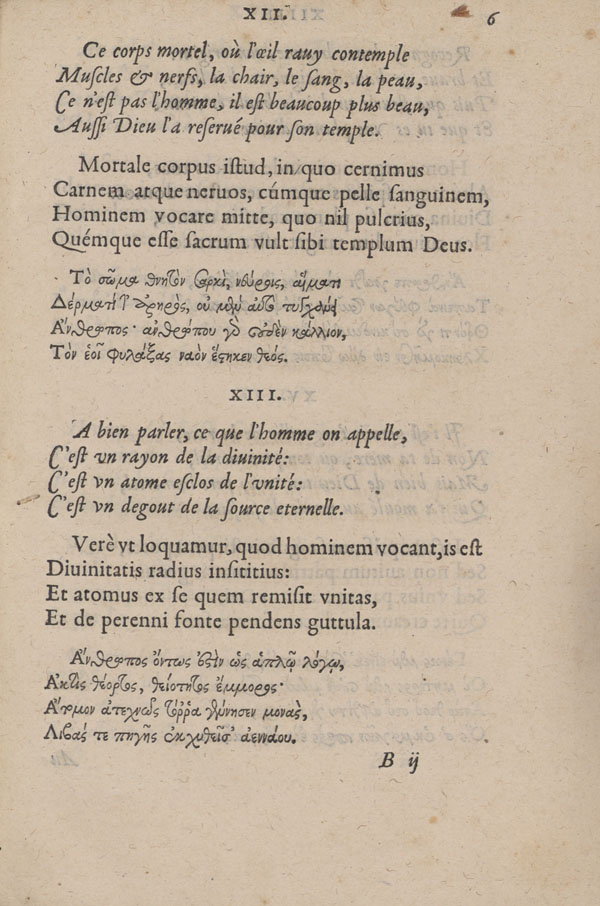 XII.
6
Ce corps mortel, où l'œil rauy contemple
Muſcles & nerfs, la chair, le ſang, la peau,
Ce n'eſt pas l'homme, il eſt beaucoup plus beau,
Auſſi Dieu l'a reſerué pour ſon temple.
Mortale corpus iſtud, in quo cernimus
Carnem atque neruos, cúmque pelle ſanguinem,
Hominem vocare mitte, quo nil pulcrius,
Quémque eſſe ſacrum vult ſibi templum Deus.
Τὸ σῶμα θνητὸν σαρκὶ, νεύροις, αἵματι
Δέρματί
Ἄνθρωπος· ἀνθρώπου γὸ οὐδὲν κάλλιον,
Τὸν ἑοῖ φυλάξας ναὸν ἕστηκεν θεός.
XIII.
A bien parler, ce que l'homme on appelle,
C'eſt vn rayon de la diuinité:
C'eſt vn atome eſclos de l'vnité:
C'eſt vn degout de la ſource eternelle.
Verè vt loquamur, quod hominem vocant, is eſt
Diuinitatis radius inſititius:
Et atomus ex ſe quem remiſit vnitas,
Et de perenni fonte pendens guttula.
Ἄνθρωπος ὄντως ἐστὶν ὡς ἁπλῷ λόγῳ,
Ἀκτὶς θέορτος, θειότητος ἔμμορος·
Ἄτμον ἀτεχνῶς γείνησεν μονὰς,
Λιβάς τε πηγῆς ἐκχυθεῖσ' ἀεννάου.
B ij